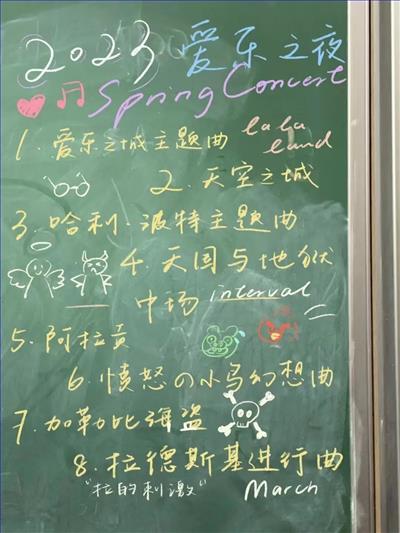 2023 爱乐之夜
Spring Concert
1. 爱乐之城主题曲 lala land
2. 天空之城
3. 哈利·波特主题曲
4. 天国与地狱
中场 interval
5. 阿拉贡
6. 愤怒の小鸟幻想曲
7. 加勒比海盗
8. 拉德斯基进行曲
"拉的刺激" March